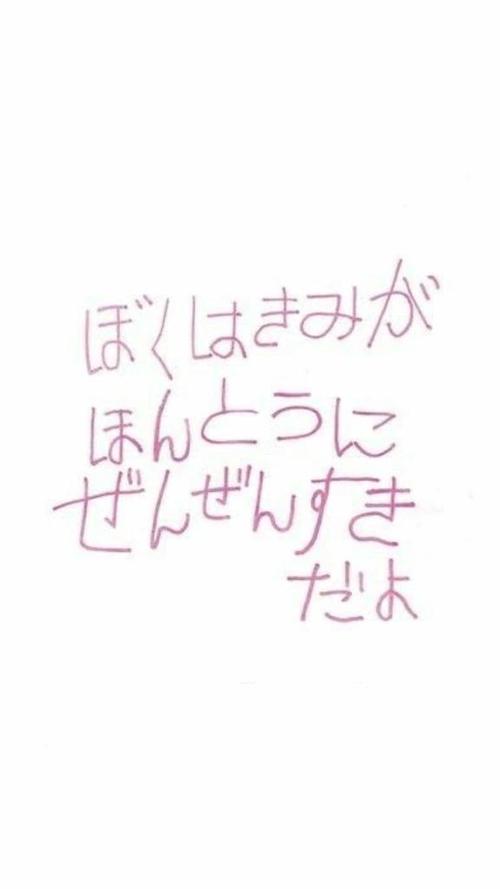 ぼくはきみが
ほんとうに
ぜんぜんすき
だよ